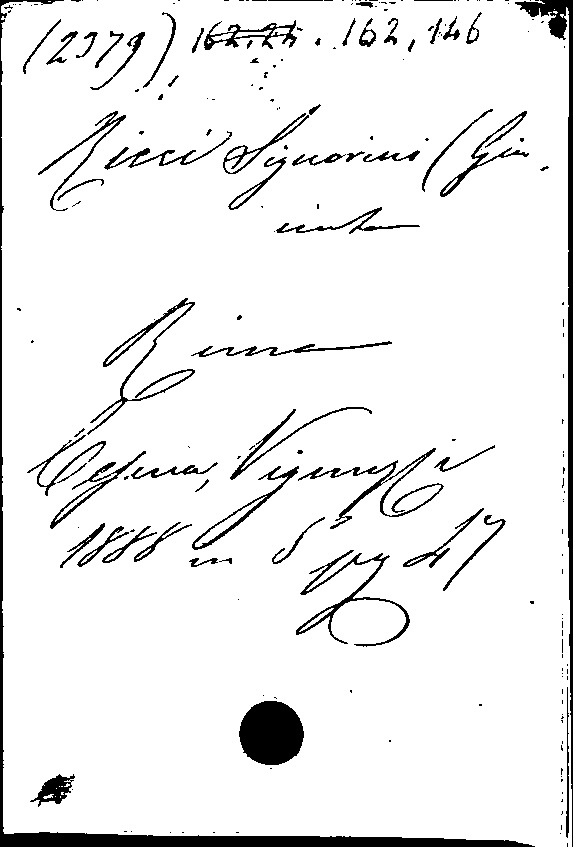 (2379) 162.24. 162,146
Ricci Signorini (Gia
cinta
Rime
Cesena, Vignuzzi
1888 in 8° pg 47